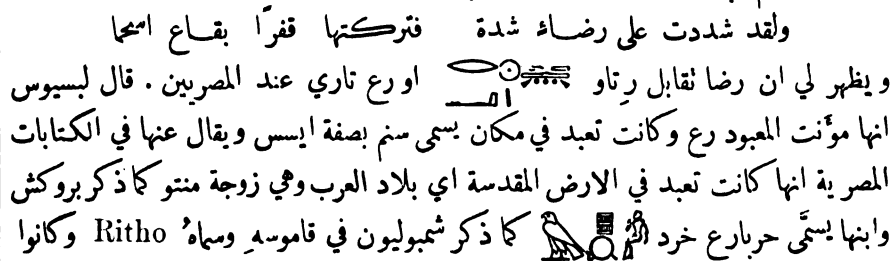 ولقد شددت على رضاء شدة فتركتها قفرًا بقاع اسحما
ويظهر لي ان رضا تقابل رِتاو او رع تاري عند المصريين . قال لبسيوس
انها موَّنت المعبود رع وكانت تعبد في مكان يسمى سنم بصفة ايسس ويقال عنها في الكتابات
المصرية انها كانت تعبد في الارض المقدسة اي بلاد العرب وهي زوجة منتو كما ذكر بروكش
وابنها يسمَّى حربارع خرد كما ذكر شمبوليون في قاموسهِ وسماهُ Ritho وكانوا